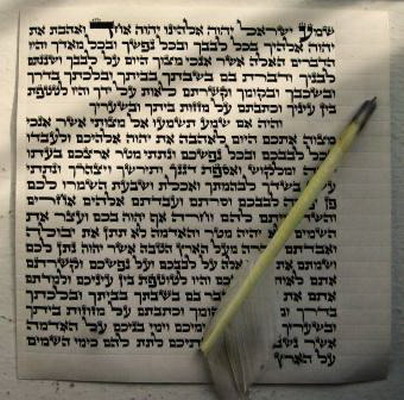 שמע ישראל יהוה אלהינו יהוה אחד ואהבת את
יהוה אלהיך בכל לבבך ובכל נפשך ובכל מאדך והיו
הדברים האלה אשר אנכי מצוך היום על לבבך ושננתם
לבניך ודברת בם בשבתך בביתך ובלכתך בדרך
ובשכבך ובקומך וקשרתם לאות על ידך והיו לטטפת
בין עיניך וכתבתם על מזזות ביתך ובשעריך
והיה אם שמע תשמעו אל מצותי אשר אנכי
מצוה אתכם היום לאהבה את יהוה אלהיכם ולעבדו
בכל לבבכם ובכל נפשכם ונתתי מטר ארצכם בעתו
ומלקוש ואספת דגנך ותירשך ויצהרך ונתתי
בשדך לבהמתך ואכלת ושבעת השמרו לכם
פן לבבכם וסרתם ועבדתם אלהים אחרים
להם וחרה אף יהוה בכם ועצר את
השמים יהיה מטר והאדמה לא תתן את יבולה
ואבדתם מעל הארץ הטבה אשר יהוה נתן לכם
ושמתם את אלה על לבבכם ועל נפשכם וקשרתם
אתם והיו לטוטפת בין עיניכם ולמדתם
אתם את בם בשבתך בביתך ובלכתך
בדרך וכתבתם על מזוזות ביתך
ובשעריך וימי בניכם על האדמה
אשר לתת להם כימי השמים
על הארץ